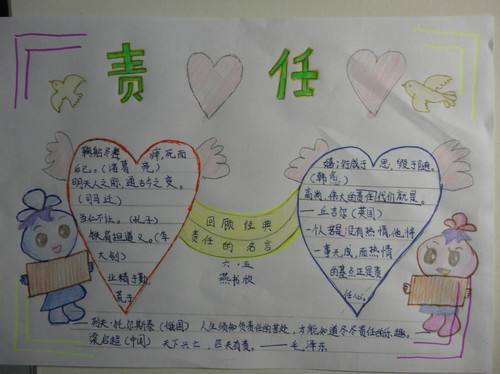 责任
鞠躬尽瘁，死而
后已。（诸葛亮）
明天人之际，通古今之变。
（司马迁）
当仁不让。（孔子）
铁肩担道义。（李
大钊）
业精于勤，荒于
嬉；行成于思，毁于随。
（韩愈）
高尚、伟大的责任代价就是。
——丘吉尔（英国）
一个人若是没有热情，他将
一事无成，而热情
的基点正是责
任心。
回顾经典
责任的名言
六·五
燕书欣
——列夫·托尔斯泰（俄国） 人生须知负责任的苦处，才能知道尽责任的乐趣。
——梁启超（中国） 天下兴亡，匹夫有责。——毛泽东